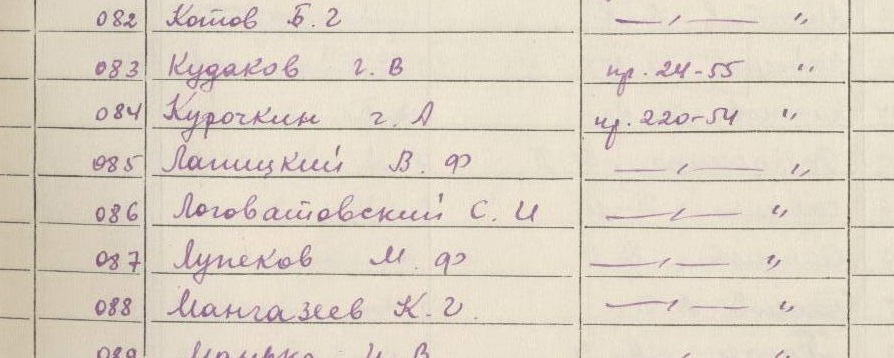 082 Котов Б. Г —〃— 〃
083 Кудаков Г. В пр. 24-55 〃
084 Курочкин Г. А пр. 220-54 〃
085 Лапицкий В. Ф —〃— 〃
086 Логоватовский С. И —〃— 〃
087 Лупеков М. Ф —〃— 〃
088 Мангазеев К. Г. —〃— 〃
089 И. В